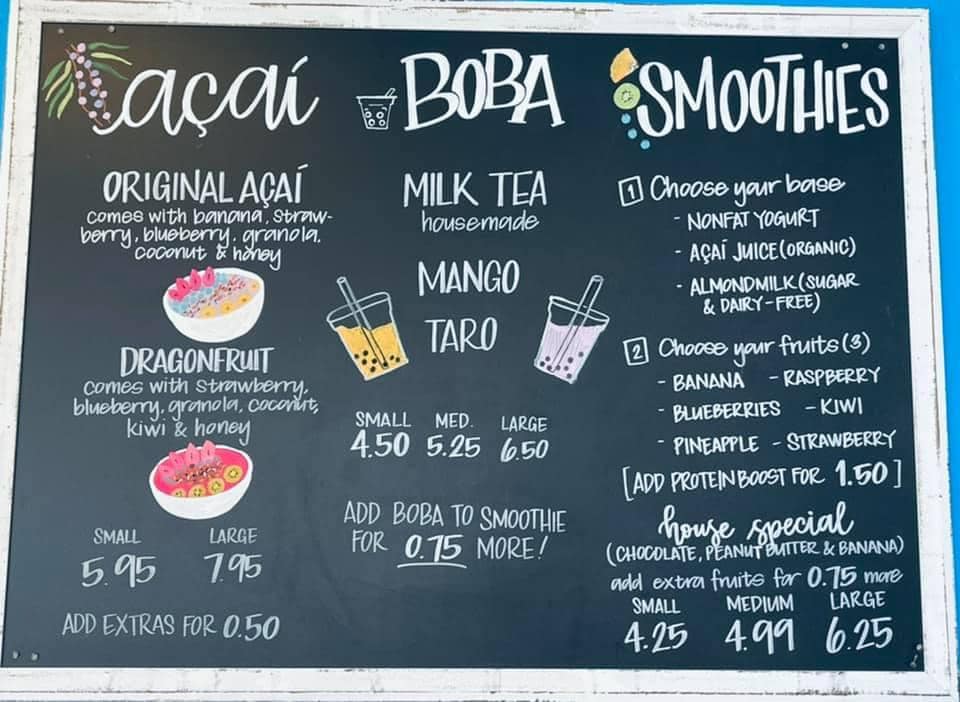 açaí
ORIGINAL AÇAÍ
comes with banana, straw-
berry, blueberry, granola,
coconut & honey
DRAGONFRUIT
comes with strawberry,
blueberry, granola, coconut,
kiwi & honey
SMALL LARGE
5.95 7.95
ADD EXTRAS FOR 0.50
BOBA
MILK TEA
housemade
MANGO
TARO
SMALL MED. LARGE
4.50 5.25 6.50
ADD BOBA TO SMOOTHIE
FOR 0.75 MORE!
SMOOTHIES
1 Choose your base
- NONFAT YOGURT
- AÇAÍ JUICE (ORGANIC)
- ALMONDMILK (SUGAR
& DAIRY-FREE)
2 Choose your fruits (3)
- BANANA - RASPBERRY
- BLUEBERRIES - KIWI
- PINEAPPLE - STRAWBERRY
[ADD PROTEIN BOOST FOR 1.50]
house special
(CHOCOLATE, PEANUT BUTTER & BANANA)
add extra fruits for 0.75 more
SMALL MEDIUM LARGE
4.25 4.99 6.25